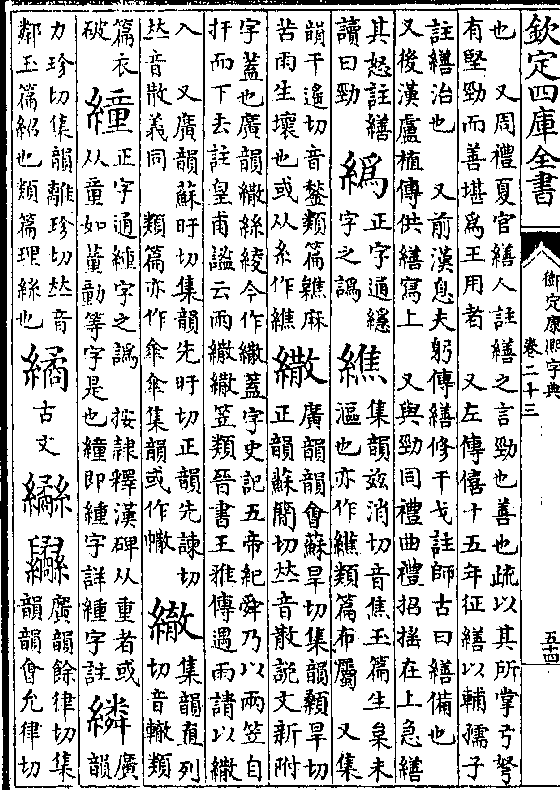 欽定四庫全書
御定康熙字典
卷二十三
五十四
也 又周禮夏官繕人註繕之言勁也善也疏以其所掌弓弩
有堅勁而善堪為王用者 又左傳僖十五年征繕以輔孺子
註繕治也 又前漢息夫躬傳繕修干戈註師古曰繕備也
又後漢盧植傳供繕寫上 又與勁同禮曲禮招搖在上急繕
其怒註繕
讀曰勁
正字通
字之譌
䌭
集韻兹消切音焦玉篇生枲未
漚也亦作䌭類篇布屬 又集
韻千遙切音鍫類篇䌭麻
苦雨生壞也或从糸作䌭
繖
廣韻韻會蘇旱切集韻顙旱切
正韻蘇簡切𠀤音散說文新附
字蓋也廣韻繖絲綾今作繖蓋字史記五帝紀舜乃以兩笠自
扞而下去註皇甫謐云兩繖繖笠類晉書王雅傳遇雨請以繖
入 又廣韻蘇旰切集韻先旰切正韻先諫切
𠀤音散義同 類篇亦作傘傘集韻或作
集韻直列
切音轍類
篇衣
破
正字通緟字之譌 按隸釋漢碑从重者或
从童如董動等字是也 即緟字詳緟字註
繗
廣
韻
力珍切集韻離珍切𠀤音
鄰玉篇紹也類篇理絲也
繘
古文
廣韻餘律切集
韻韻會允律切